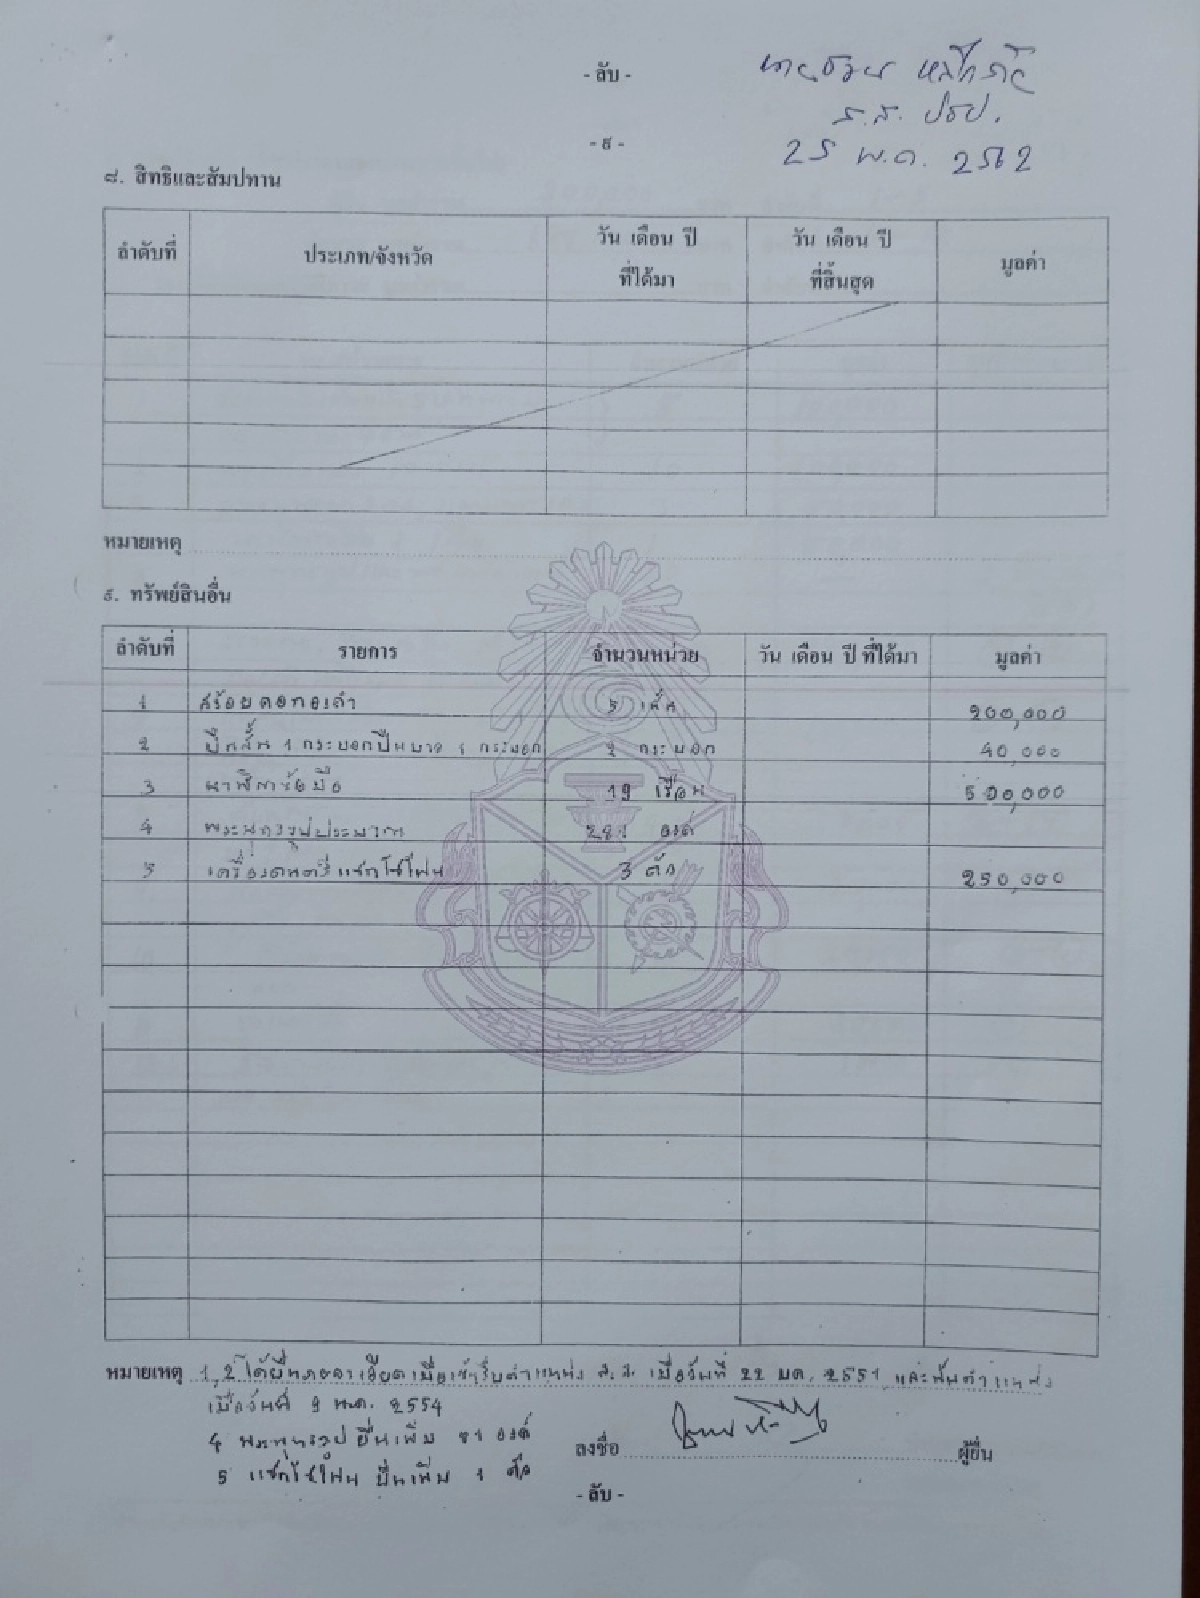 - ลับ -
25 พ.ค. 2562
- ๙ -
๘. สิทธิและสัมปทาน
ลำดับที่ ประเภท/จังหวัด วัน เดือน ปี ที่ได้มา วัน เดือน ปี ที่สิ้นสุด มูลค่า
หมายเหตุ
๙. ทรัพย์สินอื่น
ลำดับที่ รายการ จำนวนหน่วย วัน เดือน ปี ที่ได้มา มูลค่า
1 สร้อยคอทองคำ 5 เส้น 200,000
2 ปืนสั้น 1 กระบอกปืนยาว 1 กระบอก 2 กระบอก 40,000
3 นาฬิกาข้อมือ 19 เรือน 500,000
4 พระพุทธรูปประมาณ องค์
5 เครื่องดนตรีแซกโซโฟน 3 ตัว 250,000
หมายเหตุ 1,2 ได้ยื่นรายละเอียดเมื่อเข้ารับตำแหน่ง ส.ส. เมื่อวันที่ 22 มค. 2551 และพ้นตำแหน่ง
เมื่อวันที่ 9 พ.ค. 2554
4 พระพุทธรูป ยื่นเพิ่ม องค์
ลงชื่อ ผู้ยื่น
5 แซกโซโฟน ยื่นเพิ่ม 1 ตัว
- ลับ -